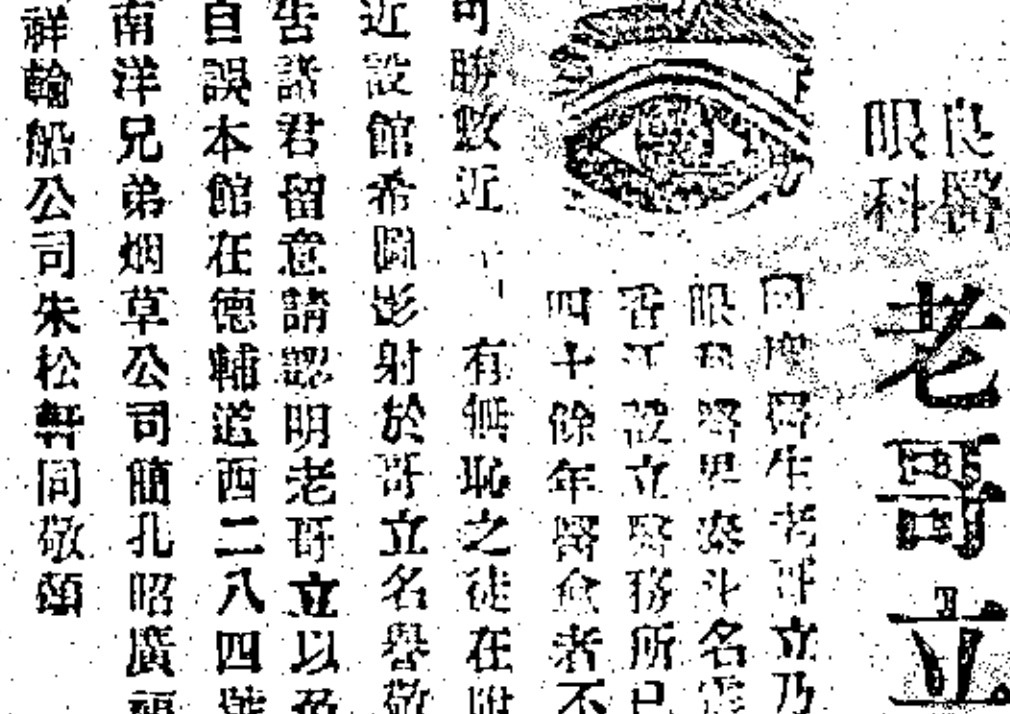 良醫
眼科
老哥立
醫生老哥立乃
眼科界泰斗名
香江設立醫務所已
四十餘年醫愈者不
可勝數近
有無恥之徒在附
近設館希圖影射於哥立名譽敬
告諸君留意請認明老哥立以免
自誤本館在德輔道西二八四號
南洋兄弟烟草公司簡孔昭廣福
祥輪船公司朱松軒同敬頌